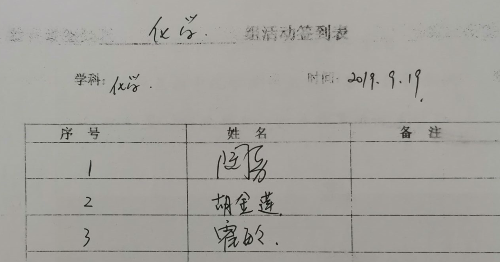 化学 组活动签到表
学科: 化学. 时间: 2019.9.19
序号 姓名 备注
1
2 胡金莲
3